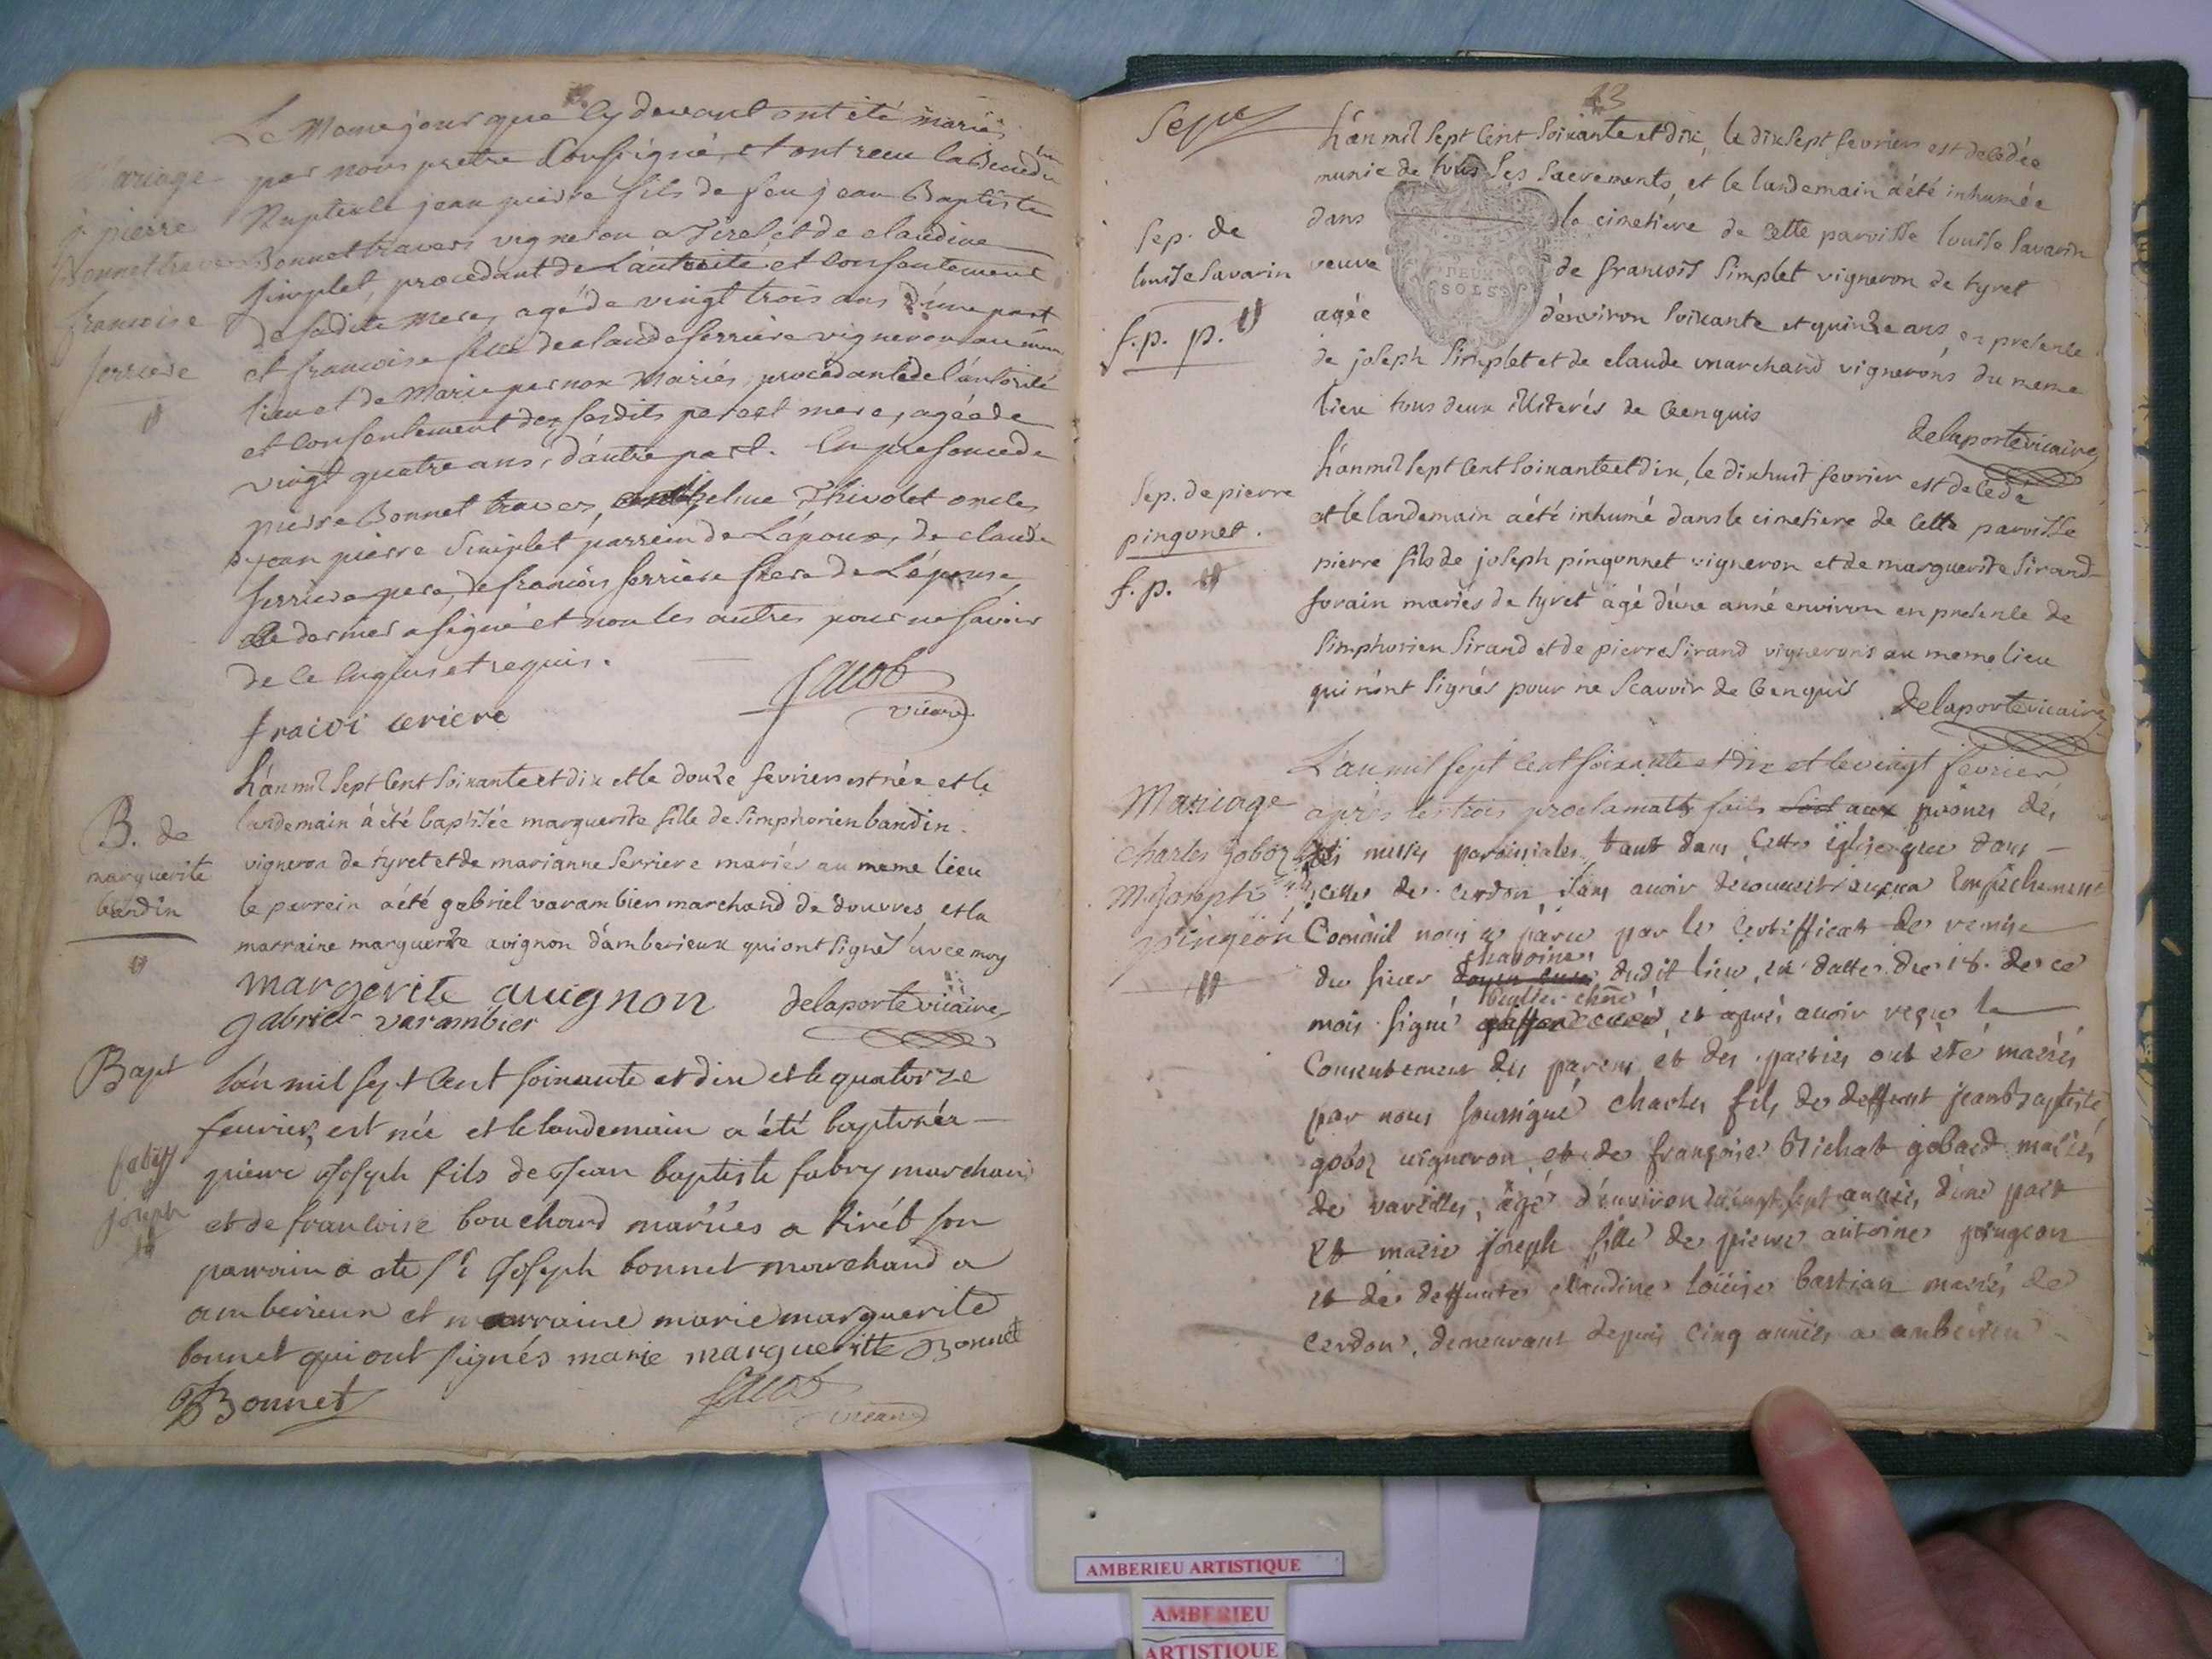 Le Meme jour que Cy devant ont été mariés
par nous pretre Soussigné, et ont recu la Bened
Nuptiale jean pierre fils de feu jean Baptiste
Bonnet travers vigneron a Tiret et de claudine
Simplet, procedant de L'autorité et consentement
de sadite Mere, agé de vingt trois ans d'une part
et francoise fille de claude ferriere vigneron au
lieu et de Marie pernon Mariés, procedante de l'autorité
et consentement des sesdits pere et mere, agée de
vingt quatre ans, d'autre part. En presence de
pierre Bonnet travers, anthelme Thivolet oncles
de jean pierre Simplet parrein de L'époux, de claude
ferriere pere, de francois ferriere frere de L'épouse,
ce dernier a signé et non les autres pour ne savoir
de ce enquis et requis.
Jacob
vicaire
fracoi ceriere
Mariage
pierre
Bonnet travers
francoise
ferriere
L'an mil Sept Cent Soixante et dix et le douze fevrier est née et le
landemain a été baptisée marguerite fille de Simphorien bandin
vigneron de tyret et de marianne Serriere mariés au meme lieu
le parrein a été gabriel varambier marchand de douvres et la
marraine marguerite avignon d'amberieux qui ont signés avec moy
B. de
marguerite
bandin
margerite auignon
gabriel varambier
delaporte vicaire
Bapt
L'an mil sept Cent soixante et dix et le quatorze
fevrier, est née et le landemain a été baptisée
pierre Joseph fils de Jean baptiste fabry marchand
et de francoise bouchard mariés a tirét son
parrain a ete sr Joseph bonnet marchand a
amberieux et marraine marie marguerite
bonnet qui ont signés marie marguerite Bonnet
fabry
joseph
Bonnet
Jacob
vicaire
13
Sept
L'an mil Sept Cent Soixante et dix, le dix Sept fevrier est decedée
munie de tous Ses Sacrements, et le landemain a été inhumée
dans le cimetiere de Cette paroisse louise Savarin
veuve de francois Simplet vigneron de tyret
agée d'environ Soixante et quinze ans en presence
de joseph Simplet et de claude marchand vignerons du meme
lieu tous deux illiterés de Cenquis
DEUX
SOLS
Sep. de
louise Savarin
f. p. p.
delaporte vicaire
L'an mil Sept Cent Soixante et dix, le dix huit fevrier est decedé
et le landemain a été inhumé dans le cimetiere de Cette paroisse
pierre fils de joseph pingonnet vigneron et de marguerite Sirand
forain mariés de tyret agé d'une anné environ en presence de
Simphorien Sirand et de pierre Sirand vignerons au meme lieu
qui n'ont Signés pour ne Scavoir de Cenquis
Sep. de pierre
pingonet.
f. p.
delaporte vicaire
L'an mil sept cent soixante et dix et le vingt fevrier
après les trois proclamats faits aux prônes des
messes paroissiales, tant dans cette église que dans
celle de cerdon, sans avoir decouvert aucun Empêchement
Comm'il nous a paru par le Certifficat de remise
chanoine
du sieur dudit lieu, en datte du 18. de ce
mois signé et après avoir reçu le
Consentement des parens et des parties ont été mariés
par nous soussigné charles fils de deffunt jean baptiste
goboz vigneron et de françoise Michat gobard mariés
de vareilles, agé d'environ vingt sept années, d'une part
Et marie joseph fille de pierre antoine pingeon
et de deffunte claudine loüise bastian mariés de
cerdon, demeurant depuis cinq années a ambérieu
Mariage
charles goboz
M. Joseph
pingeon
AMBERIEU ARTISTIQUE
AMBERIEU
ARTISTIQUE